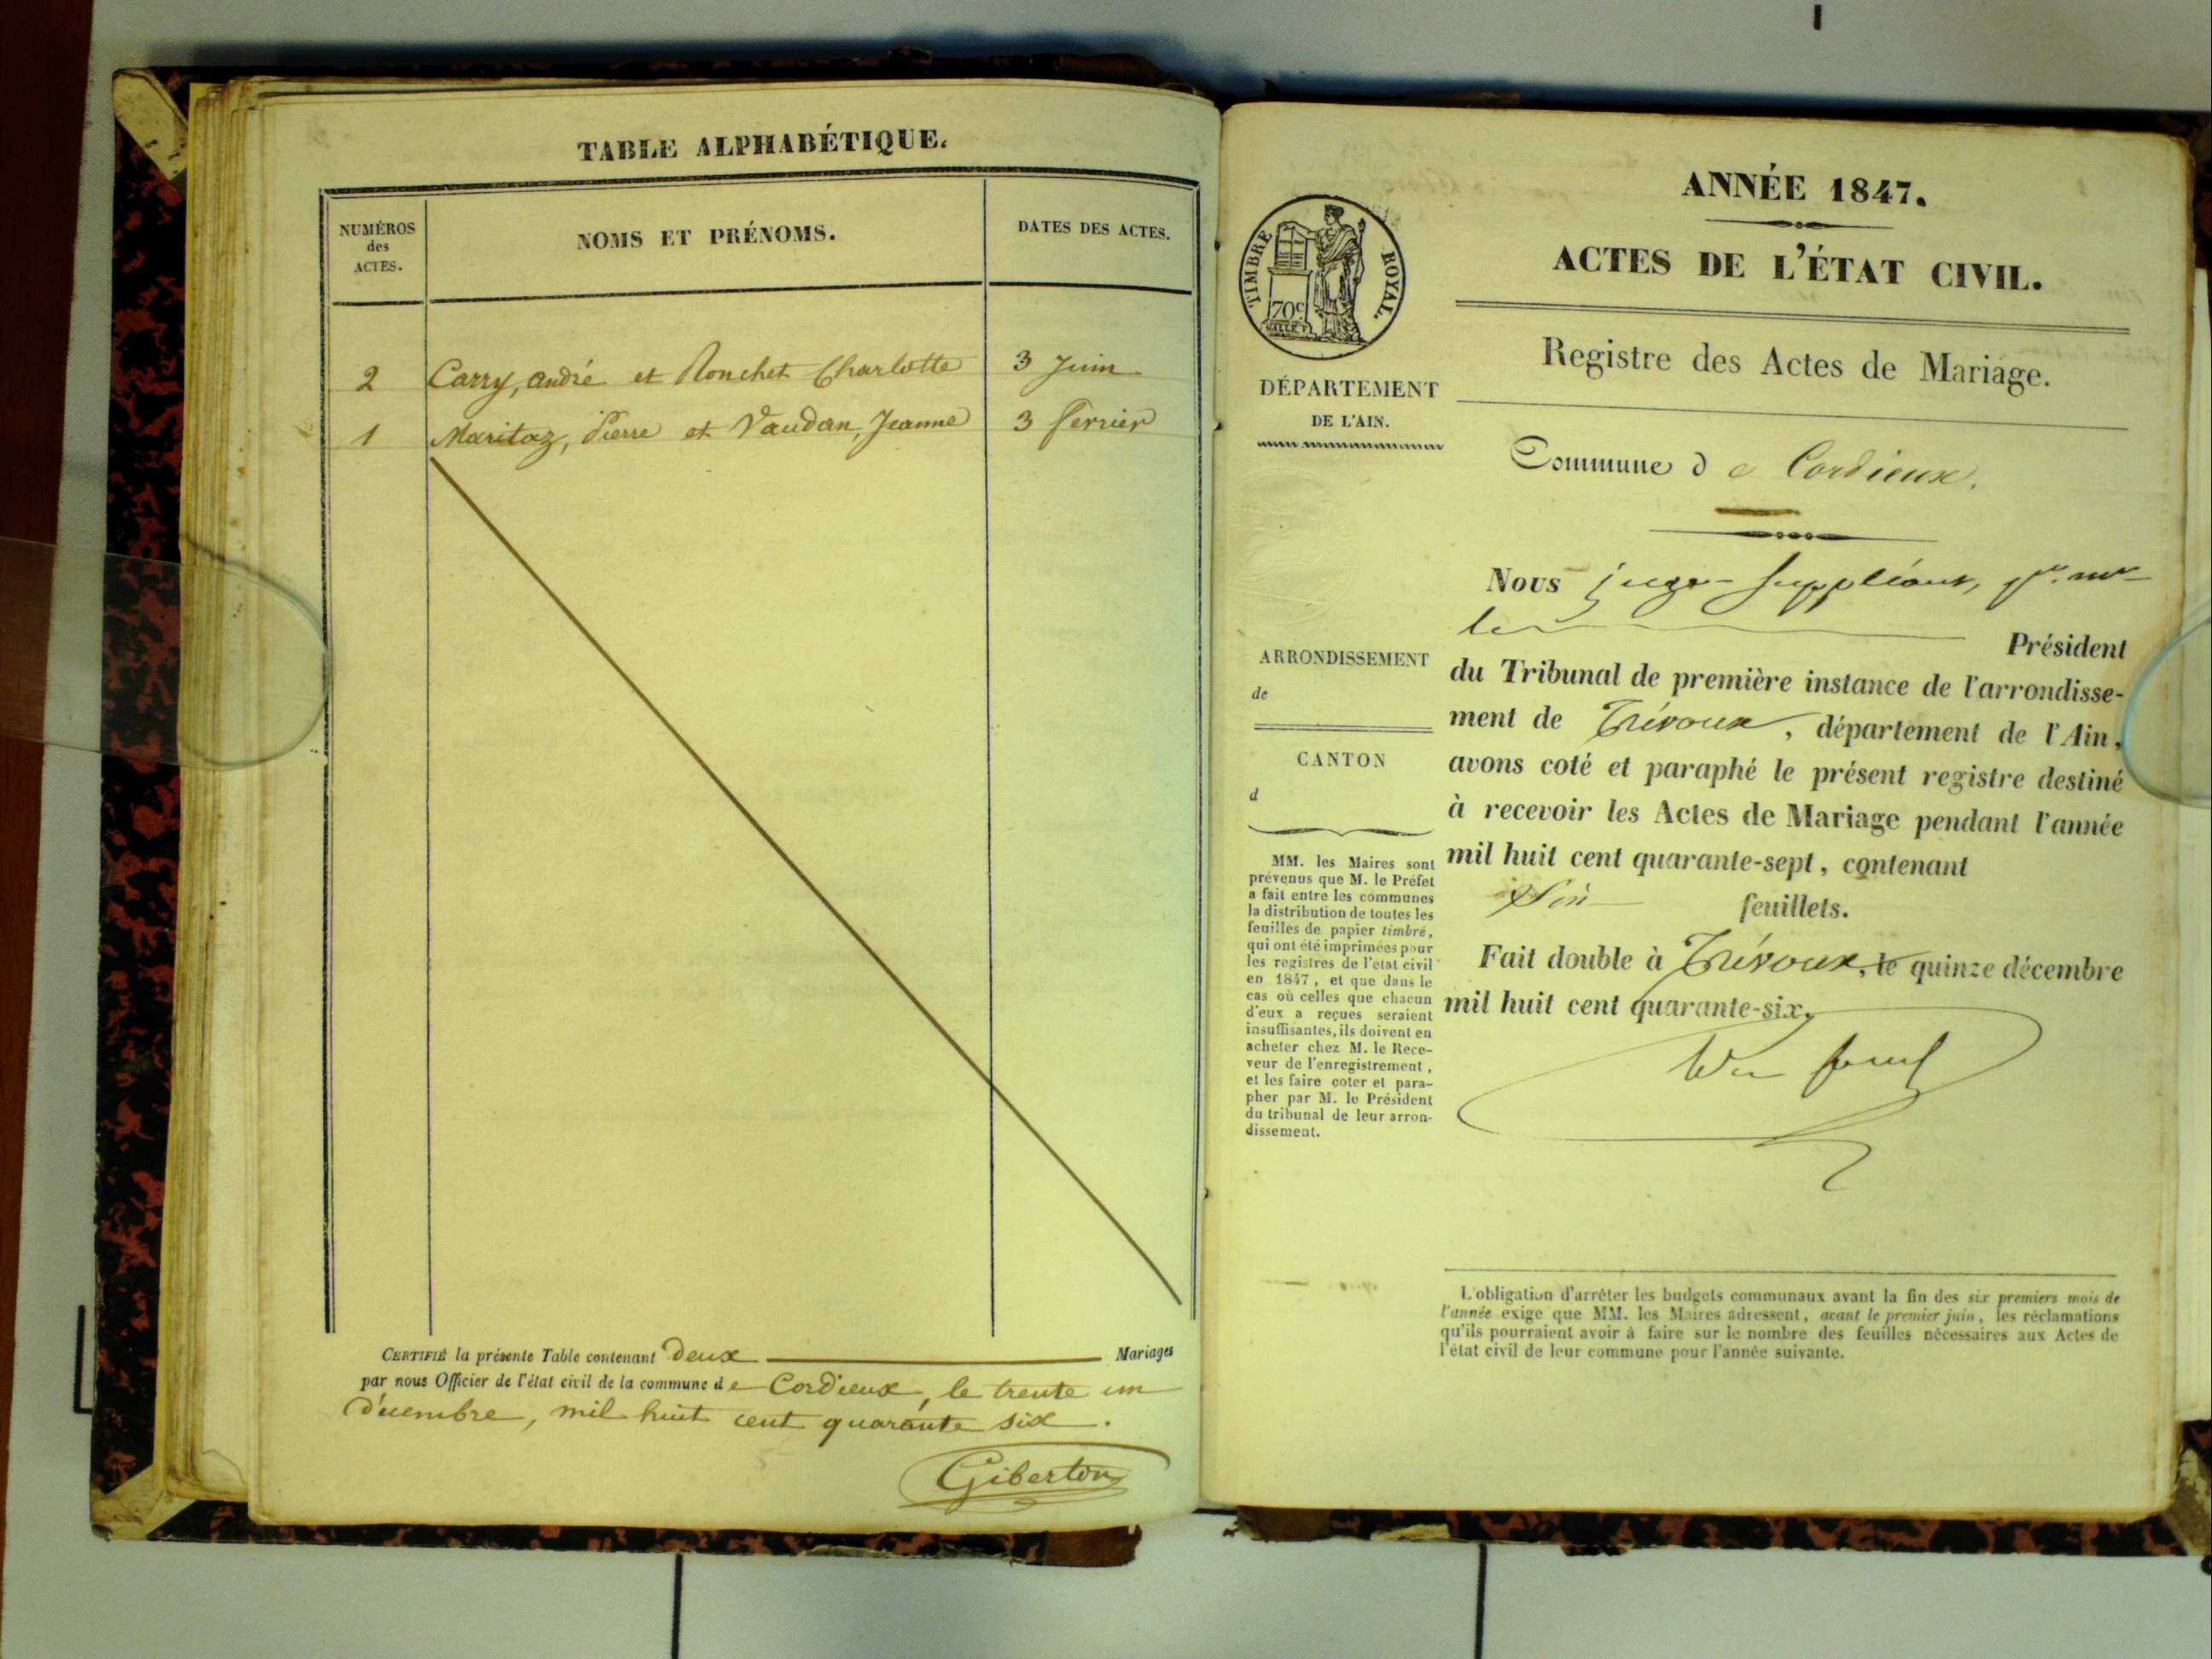 TABLE ALPHABÉTIQUE.
NUMÉROS
des
ACTES.
NOMS ET PRÉNOMS.
DATES DES ACTES.
2 Carry, André et Ronchet Charlotte 3 Juin
1 Maritaz, Pierre et Vaudan, Jeanne 3 février
CERTIFIÉ la présente Table contenant deux Mariages
par nous Officier de l'état civil de la commune de Cordieux, le trente un
décembre, mil huit cent quarante six.
Giberton
TIMBRE ROYAL.
70c
DÉPARTEMENT
DE L'AIN.
ARRONDISSEMENT
de
CANTON
d
MM. les Maires sont
prévenus que M. le Préfet
a fait entre les communes
la distribution de toutes les
feuilles de papier timbré,
qui ont été imprimées pour
les registres de l'état civil
en 1847, et que dans le
cas où celles que chacun
d'eux a reçues seraient
insuffisantes, ils doivent en
acheter chez M. le Rece-
veur de l'enregistrement,
et les faire coter et para-
pher par M. le Président
du tribunal de leur arron-
dissement.
ANNÉE 1847.
ACTES DE L'ÉTAT CIVIL.
Registre des Actes de Mariage.
Commune de Cordieux.
Nous juge-suppléant,
le Président
du Tribunal de première instance de l'arrondisse-
ment de Trévoux, département de l'Ain,
avons coté et paraphé le présent registre destiné
à recevoir les Actes de Mariage pendant l'année
mil huit cent quarante-sept, contenant
feuillets.
Fait double à Trévoux, le quinze décembre
mil huit cent quarante-six.
L'obligation d'arrêter les budgets communaux avant la fin des six premiers mois de
l'année exige que MM. les Maires adressent, avant le premier juin, les réclamations
qu'ils pourraient avoir à faire sur le nombre des feuilles nécessaires aux Actes de
l'état civil de leur commune pour l'année suivante.